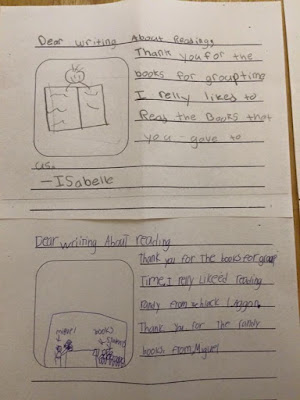 Dear writing About Reading,
Thank you for the
books for grouptime
I relly likes to
Reas the Books that
you gave to
us.
-ISabelle
Dear writing About reading
Thank you for The books for group
Time, I relly likeed reading
Randy from
Thank You for The Candy
books from, Miguel
miguel
books